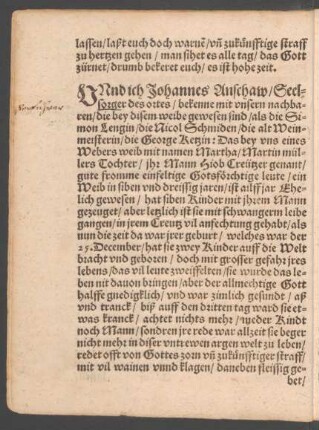 lassen/ laßt euch doch warnē/ vñ zukünfftige straff
zu hertzen gehen/ man sihet es alle tag/ das Gott
zürnet/ drumb bekeret euch/ es ist hohe zeit.
VNnd ich Johannes Anschaw/ Seel-
sorger des ottes/ bekenne mit vnsern nachba-
ren/ die bey disem weibe gewesen sind/ als die Si-
mon Lengin/ die Nicol Schmiden/ die alt Wein-
meisterin/ die George Ketzin: Das bey vns eines
Webers weib mit namen Martha/ Martin mül-
lers Tochter/ jhr Mann Hiob Creützer genant/
gute fromme einfeltige Gotsförchtige leute/ ein
Weib in siben vnd dreissig jaren/ ist ailff jar Ehe-
lich gewesen/ hat siben Kinder mit jhrem Mann
gezeuget/ aber letzlich ist sie mit schwangerm leibe
gangen/ in jrem Creutz vil anfechtung gehabt/ als
nun die zeit da war jrer geburt/ welches war der
25. December/ hat sie zwey Kinder auff die Welt
bracht vnd geboren/ doch mit grosser gefahr jres
lebens/ das vil leute zweiffelten/ sie wurde das le-
ben nit dauon bringen/ aber der allmechtige Gott
halffe gnediglich/ vnd war zimlich gesundt/ aß
vnd tranck/ biß auff den dritten tag ward sie et-
was kranck/ achtet nichts mehr/ weder Kindt
noch Mann/ sondren jre rede war allzeit sie beger
nicht mehr in diser vntrewen argen welt zu leben/
redet offt von Gottes zorn vñ zukünfftiger straff/
mit vil wainen vnnd klagen/ daneben fleissig ge-
bet/